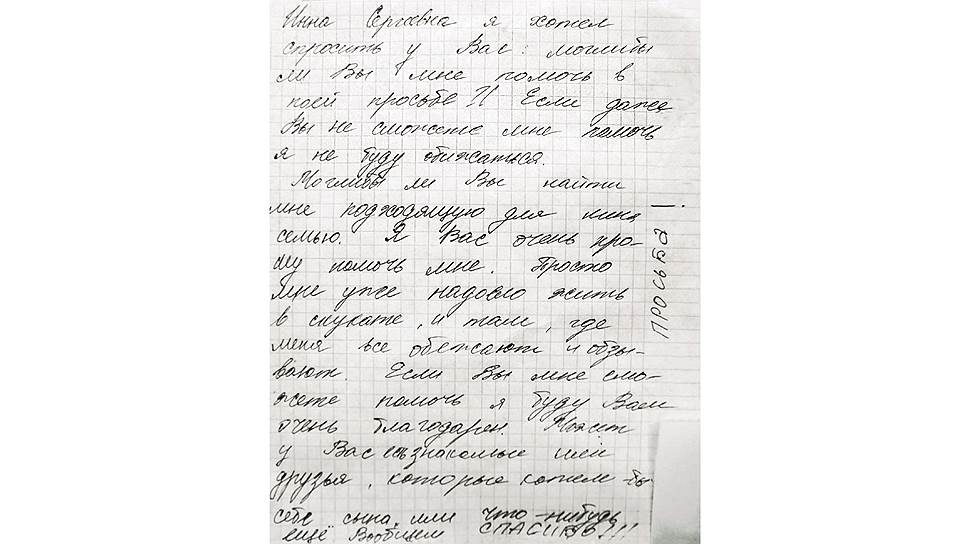 Инна Сергеевна я хотел
спросить у Вас: моглибы
ли Вы мне помочь в
моей просьбе И Если даже
Вы не сможете мне помочь
я не буду обижаться.
Моглибы ли Вы найти
мне подходящую для миня
семью. Я Вас очень про-
шу помочь мне. Просто
мне уже надоело жить
в скукате, и там, где
меня все обежают и обзы-
вают. Если Вы мне смо-
жете помочь я буду Вам
очень благодарен. Может
у Вас есь знакомые или
друзья, которые хотели бы
себе сына, или что-нибудь
ещё Вообщем СПАСИБО!!!
ПРОСЬБА!